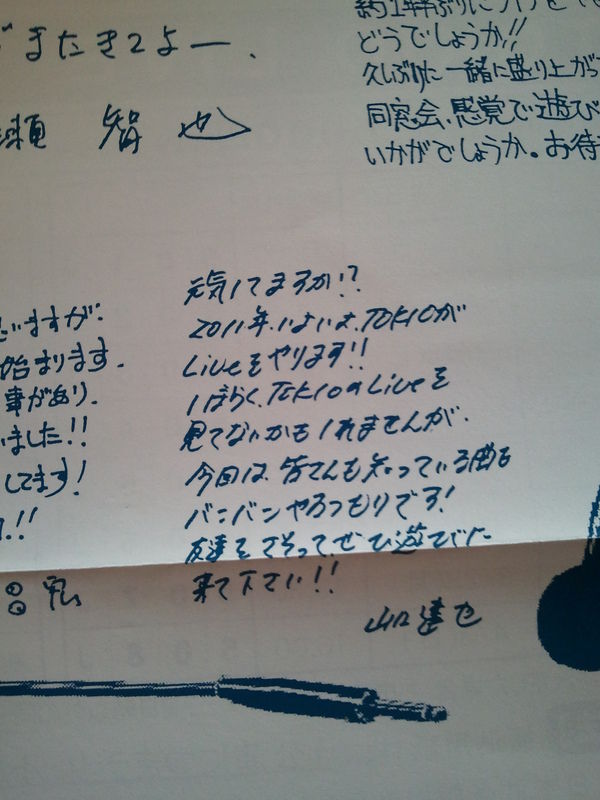 またきてよー.
瀬 智也
約1年ぶりに
どうでしょうか!!
久しぶりに一緒に盛り上がっ
同窓会感覚で遊び
いかがでしょうか。お待
いますが.
始まります.
事があり.
いました!!
してます!
!!
昌宏
元気してますか!?
2011年.いよいよ.TOKIOが
Liveをやります!!
しばらく.TOKIOのLiveを
見てないかもしれませんが.
今回は、皆さんも知っている曲を
バンバンやるつもりです!
友達をさそって、ぜひ遊びに
来て下さい!!
山口達也